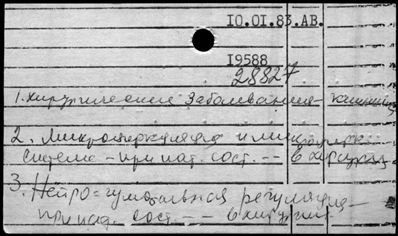 IO.OI.83.АВ.
I9588
28827
1. хирургические заболевания -
2. Микроциркуляция и
система - при пат. сост. --- в хирургии
3. Нейро-гуморальная регуляция -
при пат. сост. -- в хирургии